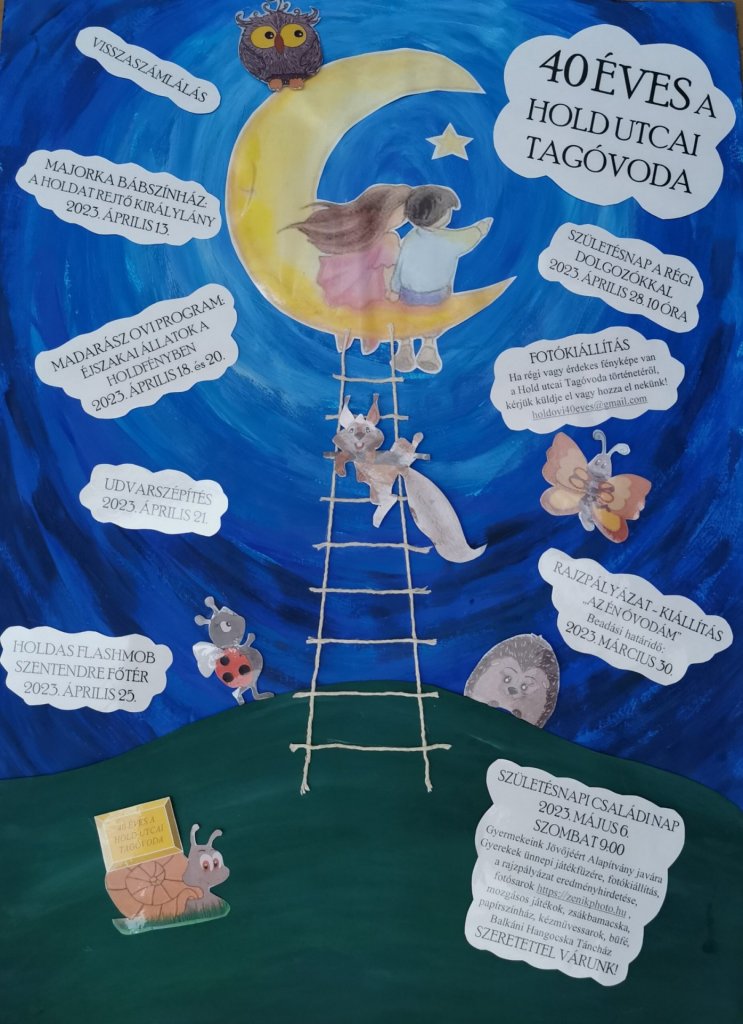 VISSZASZÁMLÁLÁS
40 ÉVES A
HOLD UTCAI
TAGÓVODA
MAJORKA BÁBSZÍNHÁZ:
A HOLDAT REJTŐ KIRÁLYLÁNY
2023. ÁPRILIS 13.
SZÜLETÉSNAP A RÉGI
DOLGOZÓKKAL
2023. ÁPRILIS 28. 10 ÓRA
MADARÁSZ OVI PROGRAM:
ÉJSZAKAI ÁLLATOK A
HOLDFÉNYBEN
2023. ÁPRILIS 18. és 20.
FOTÓKIÁLLÍTÁS
Ha régi vagy érdekes fényképe van
a Hold utcai Tagóvoda történetéről,
kérjük küldje el vagy hozza el nekünk!
holdovi40eves@gmail.com
UDVARSZÉPÍTÉS
2023. ÁPRILIS 21.
RAJZPÁLYÁZAT - KIÁLLÍTÁS
„AZ ÉN ÓVODÁM”
Beadási határidő:
2023. MÁRCIUS 30.
HOLDAS FLASHMOB
SZENTENDRE FŐTÉR
2023. ÁPRILIS 25.
SZÜLETÉSNAPI CSALÁDI NAP
2023. MÁJUS 6.
SZOMBAT 9:00
Gyermekeink Jövőjéért Alapítvány javára
Gyerekek ünnepi játékfüzére, fotókiállítás,
a rajzpályázat eredményhirdetése,
fotósarok https://zenikphoto.hu ,
mozgásos játékok, zsákbamacska,
papírszínház, kézművessarok, büfé,
Balkáni Hangocska Táncház
SZERETETTEL VÁRUNK!
40 ÉVES A
HOLD UTCAI
TAGÓVODA